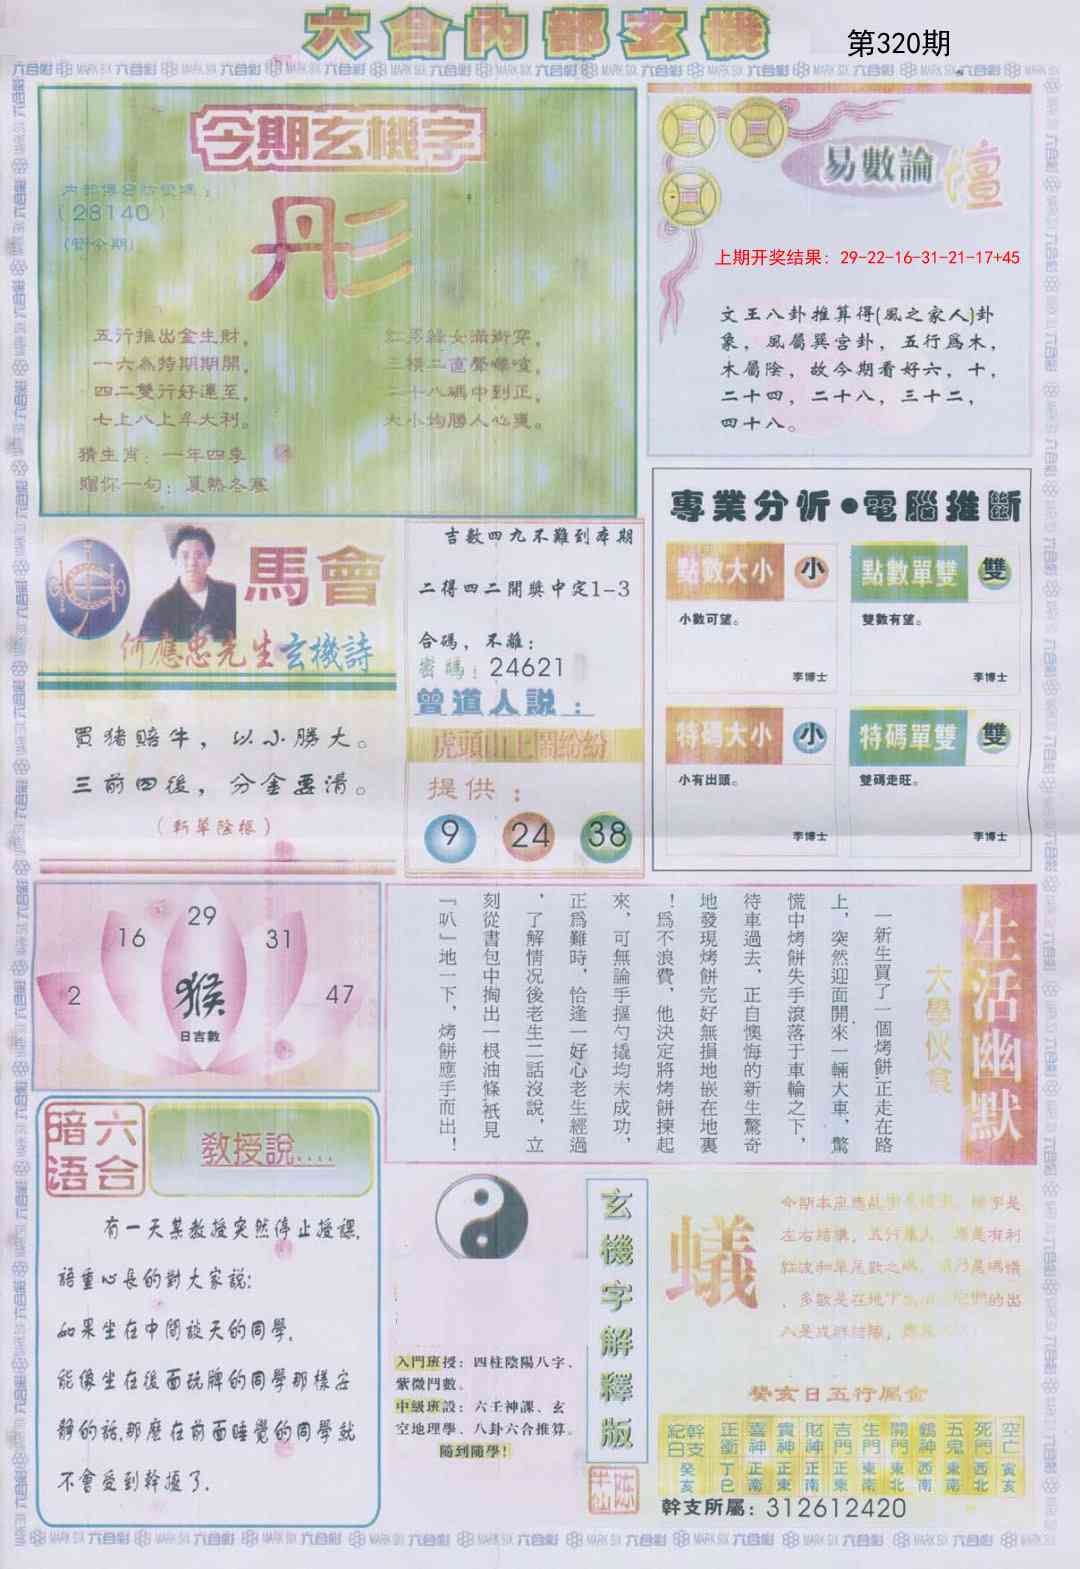 六合內部玄機
第320期
今期玄機字
(28140)
(管今期)
彤
五行推出金生財,
一六為特期期開,
四二雙行好運至,
七上八上牟大利。
紅男綠女滿街穿,
三橫二直聲嘩喧,
二十八碼中到正,
大小均勝人心裏。
猜生肖:一年四季
贈你一句:夏熱冬寒
易數論壇
上期开奖结果:29-22-16-31-21-17+45
文王八卦推算得(風之家人)卦
象，風屬巽宮卦，五行爲木，
木屬陰，故今期看好六，十，
二十四，二十八，三十二，
四十八。
馬會
何應忠先生玄機詩
買豬賠牛，以小勝大。
三前四後，分金要清。
吉數四九不難到本期
二得四二開獎中定1-3
合碼，不離：
密碼：24621
曾道人説：
虎頭山上鬧紛紛
提供：
9 24 38
專業分析●電腦推斷
點數大小 小
小數可望。
李博士
點數單雙 雙
雙數有望。
李博士
特碼大小 小
小有出頭。
李博士
特碼單雙 雙
雙碼走旺。
李博士
2 16 29 31 47
猴
日吉數
生活幽默
大學伙食
一新生買了一個烤餅正走在路
上，突然迎面開來一輛大車，驚
慌中烤餅失手滾落于車輪之下，
待車過去，正自懊悔的新生驚奇
地發現烤餅完好無損地嵌在地裏
！爲不浪費，他決定將烤餅揀起
來，可無論手摳勺撬均未成功，
正爲難時，恰逢一好心老生經過
，了解情况後老生二話沒說，立
刻從書包中掏出一根油條，衹見
『叭』地一下，烤餅應手而出！
六合暗语
教授說....
有一天某教授突然停止授課,
語重心長的對大家說:
如果坐在中間談天的同學,
能像坐在後面玩牌的同學那樣安
靜的話,那麼在前面睡覺的同學就
不會受到幹擾了.
入門班授：四柱陰陽八字、
紫微鬥數。
中級班設：六壬神課、玄
空地理學、八卦六合推算。
隨到隨學!
玄機字解釋版
蟻
癸亥日五行屬金
幹支紀日 正衝 喜神 貴神 財神 吉門 生門 開門 鶴神 五鬼 死門 空亡
癸亥 丁巳 正南 正南 正南 正東 東南 東北 西南 東南 西北 寅亥
幹支所屬：312612420